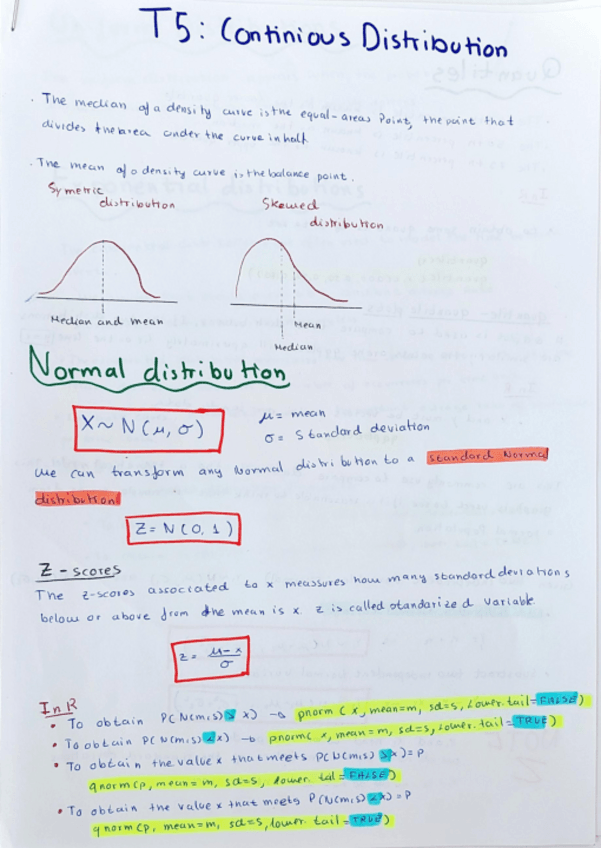 T5: Continious Distribution
· The median of a density curve is the equal-areas Point, the point that
divides the area under the curve in half
· The mean of a density curve is the balance point.
Symetric
distribution
Skewed
distribution
Median and mean
Mean
Median
Normal distribution
X~ N(μ, σ)
μ= mean
σ= Standard deviation
we can transform any Normal distribution to a standard Normal
distribution
Z= N(0, 1)
Z - scores
The z-scores associated to x meassures how many standard deviations
below or above from the mean is x. z is called standarized variable
z= μ-x / σ
In R
• To obtain P(N(m,s)≥ x) → pnorm (x, mean=m, sd=s, Lower.tail=FALSE)
• To obtain P(N(m,s)≤x) → pnorm(x, mean=m, sd=s, Lower.tail=TRUE)
• To obtain the value x that meets P(N(m,s)≥x)=p
qnorm(p, mean=m, sd=s, lower.tal=FALSE)
• To obtain the value x that meets P(N(m,s)≤x)=p
qnorm(p, mean=m, sd=s, lower.tail=TRUE)